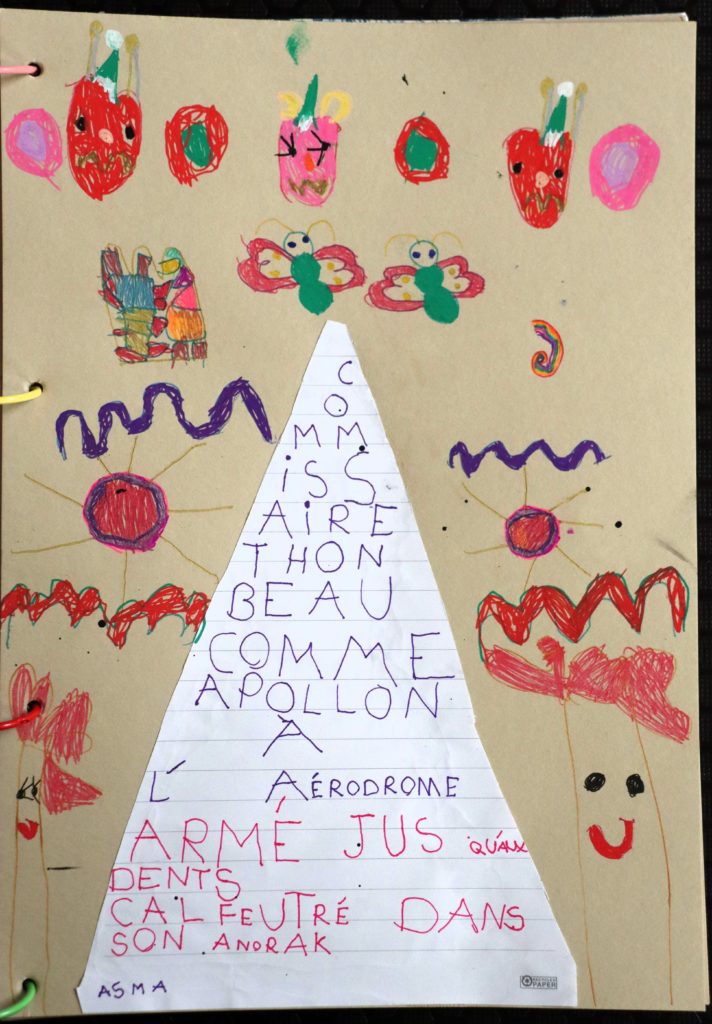 C
O
MM
iSS
AiRE
THON
BEAU
COMME
APOLLON
A
L' AÉRODROME
ARMÉ JUS QU'AUX
DENTS
CALFEUTRÉ DANS
SON ANORAK
ASMA
RECYCLED
PAPER